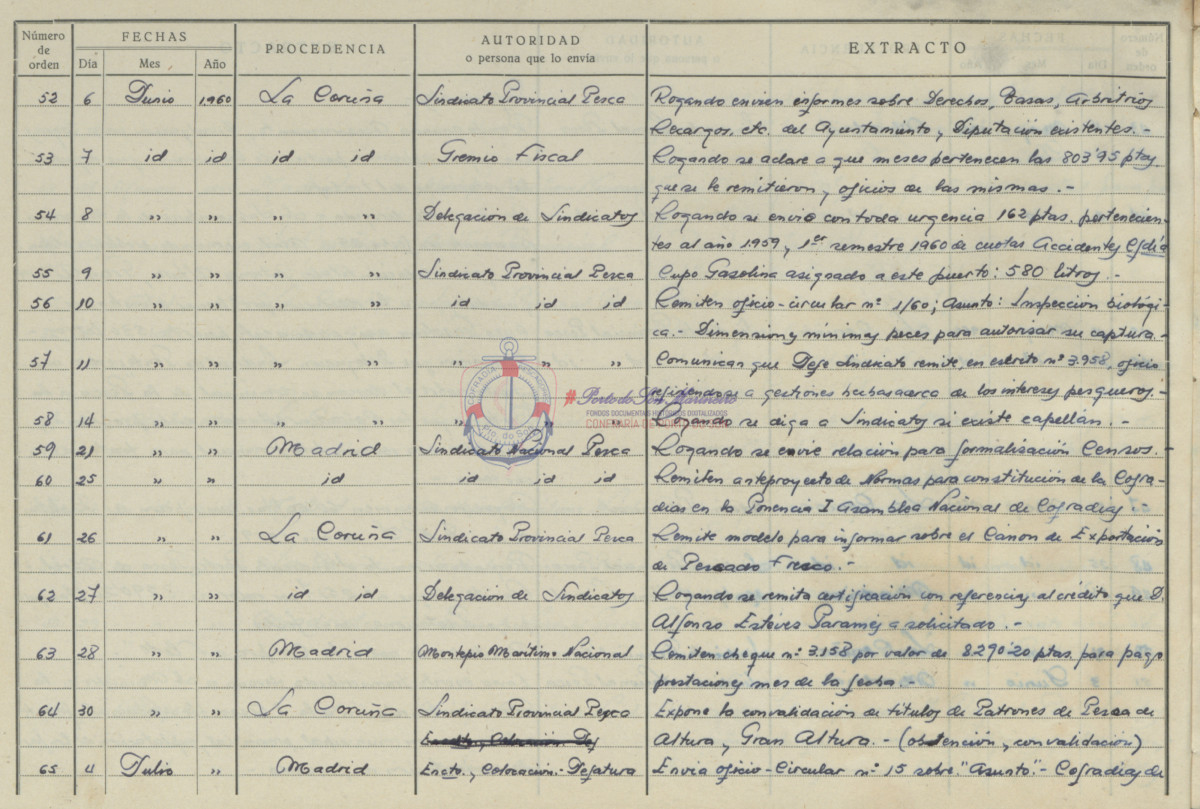 Número de orden FECHAS PROCEDENCIA AUTORIDAD o persona que lo envía EXTRACTO
Día Mes Año
52 6 Junio 1.960 La Coruña Sindicato Provincial Pesca Rogando envien informes sobre Derechos, Tasas, Arbitrios
Recargos, etc. del Ayuntamiento y Diputación existentes.-
53 7 id id id id Gremio Fiscal Rogando se aclare a que meses pertenecen las 803'95 ptas
que se le remitieron y oficios de las mismas.-
54 8 " " " " Delegación de Sindicatos Rogando se envie con toda urgencia 162 ptas. pertenecien-
tes al año 1.959 y 1er semestre 1960 de cuotas Accidentes
55 9 " " " " Sindicato Provincial Pesca Cupo Gasolina asignado a este puerto: 580 litros.-
56 10 " " " " id id id Remiten oficio-circular nº 1/60; Asunto: Inspección biológi-
ca.- Dimensiones mínimas peces para autorisar su captura.-
57 11 " " " " " " " Comunican que Jefe Sindicato remite, en escrito nº 3.958, oficio
refiriendose a gestiones hechas acerca de los intereses pesqueros.-
58 14 " " " " " " " Rogando se diga a Sindicatos si existe capellán.-
59 21 " " Madrid Sindicato Nacional Pesca Rogando se envie relación para formalisación Censos.-
60 25 " " id id id id Remiten anteproyecto de Normas para constitución de la Cofra-
dias en la Ponencia I Asamblea Nacional de Cofradias -
61 26 " " La Coruña Sindicato Provincial Pesca Remite modelo para informar sobre el Canon de Exportación
de Pescado Fresco.-
62 27 " " id id Delegación de Sindicatos Rogando se remita certificación con referencias al crédito que D.
Alfonso Esteves Parames a solicitado.-
63 28 " " Madrid Montepio Marítimo Nacional Remiten cheque nº 3.158 por valor de 8.290'20 ptas. para pago
prestaciones mes de la fecha -
64 30 " " La Coruña Sindicato Provincial Pesca Expone la convalidación de titulos de Patrones de Pesca de
Altura y Gran Altura.- (obtención y convalidación)
65 4 Julio " Madrid Encto. y Colocación.- Jefatura Envia oficio-Circular nº 15 sobre "Asunto".- Cofradias de
COFRADÍA PESCADORES
Pto. do Son
#Porto do Son Marineiro
FONDOS DOCUMENTAIS HISTÓRICOS DIXITALIZADOS